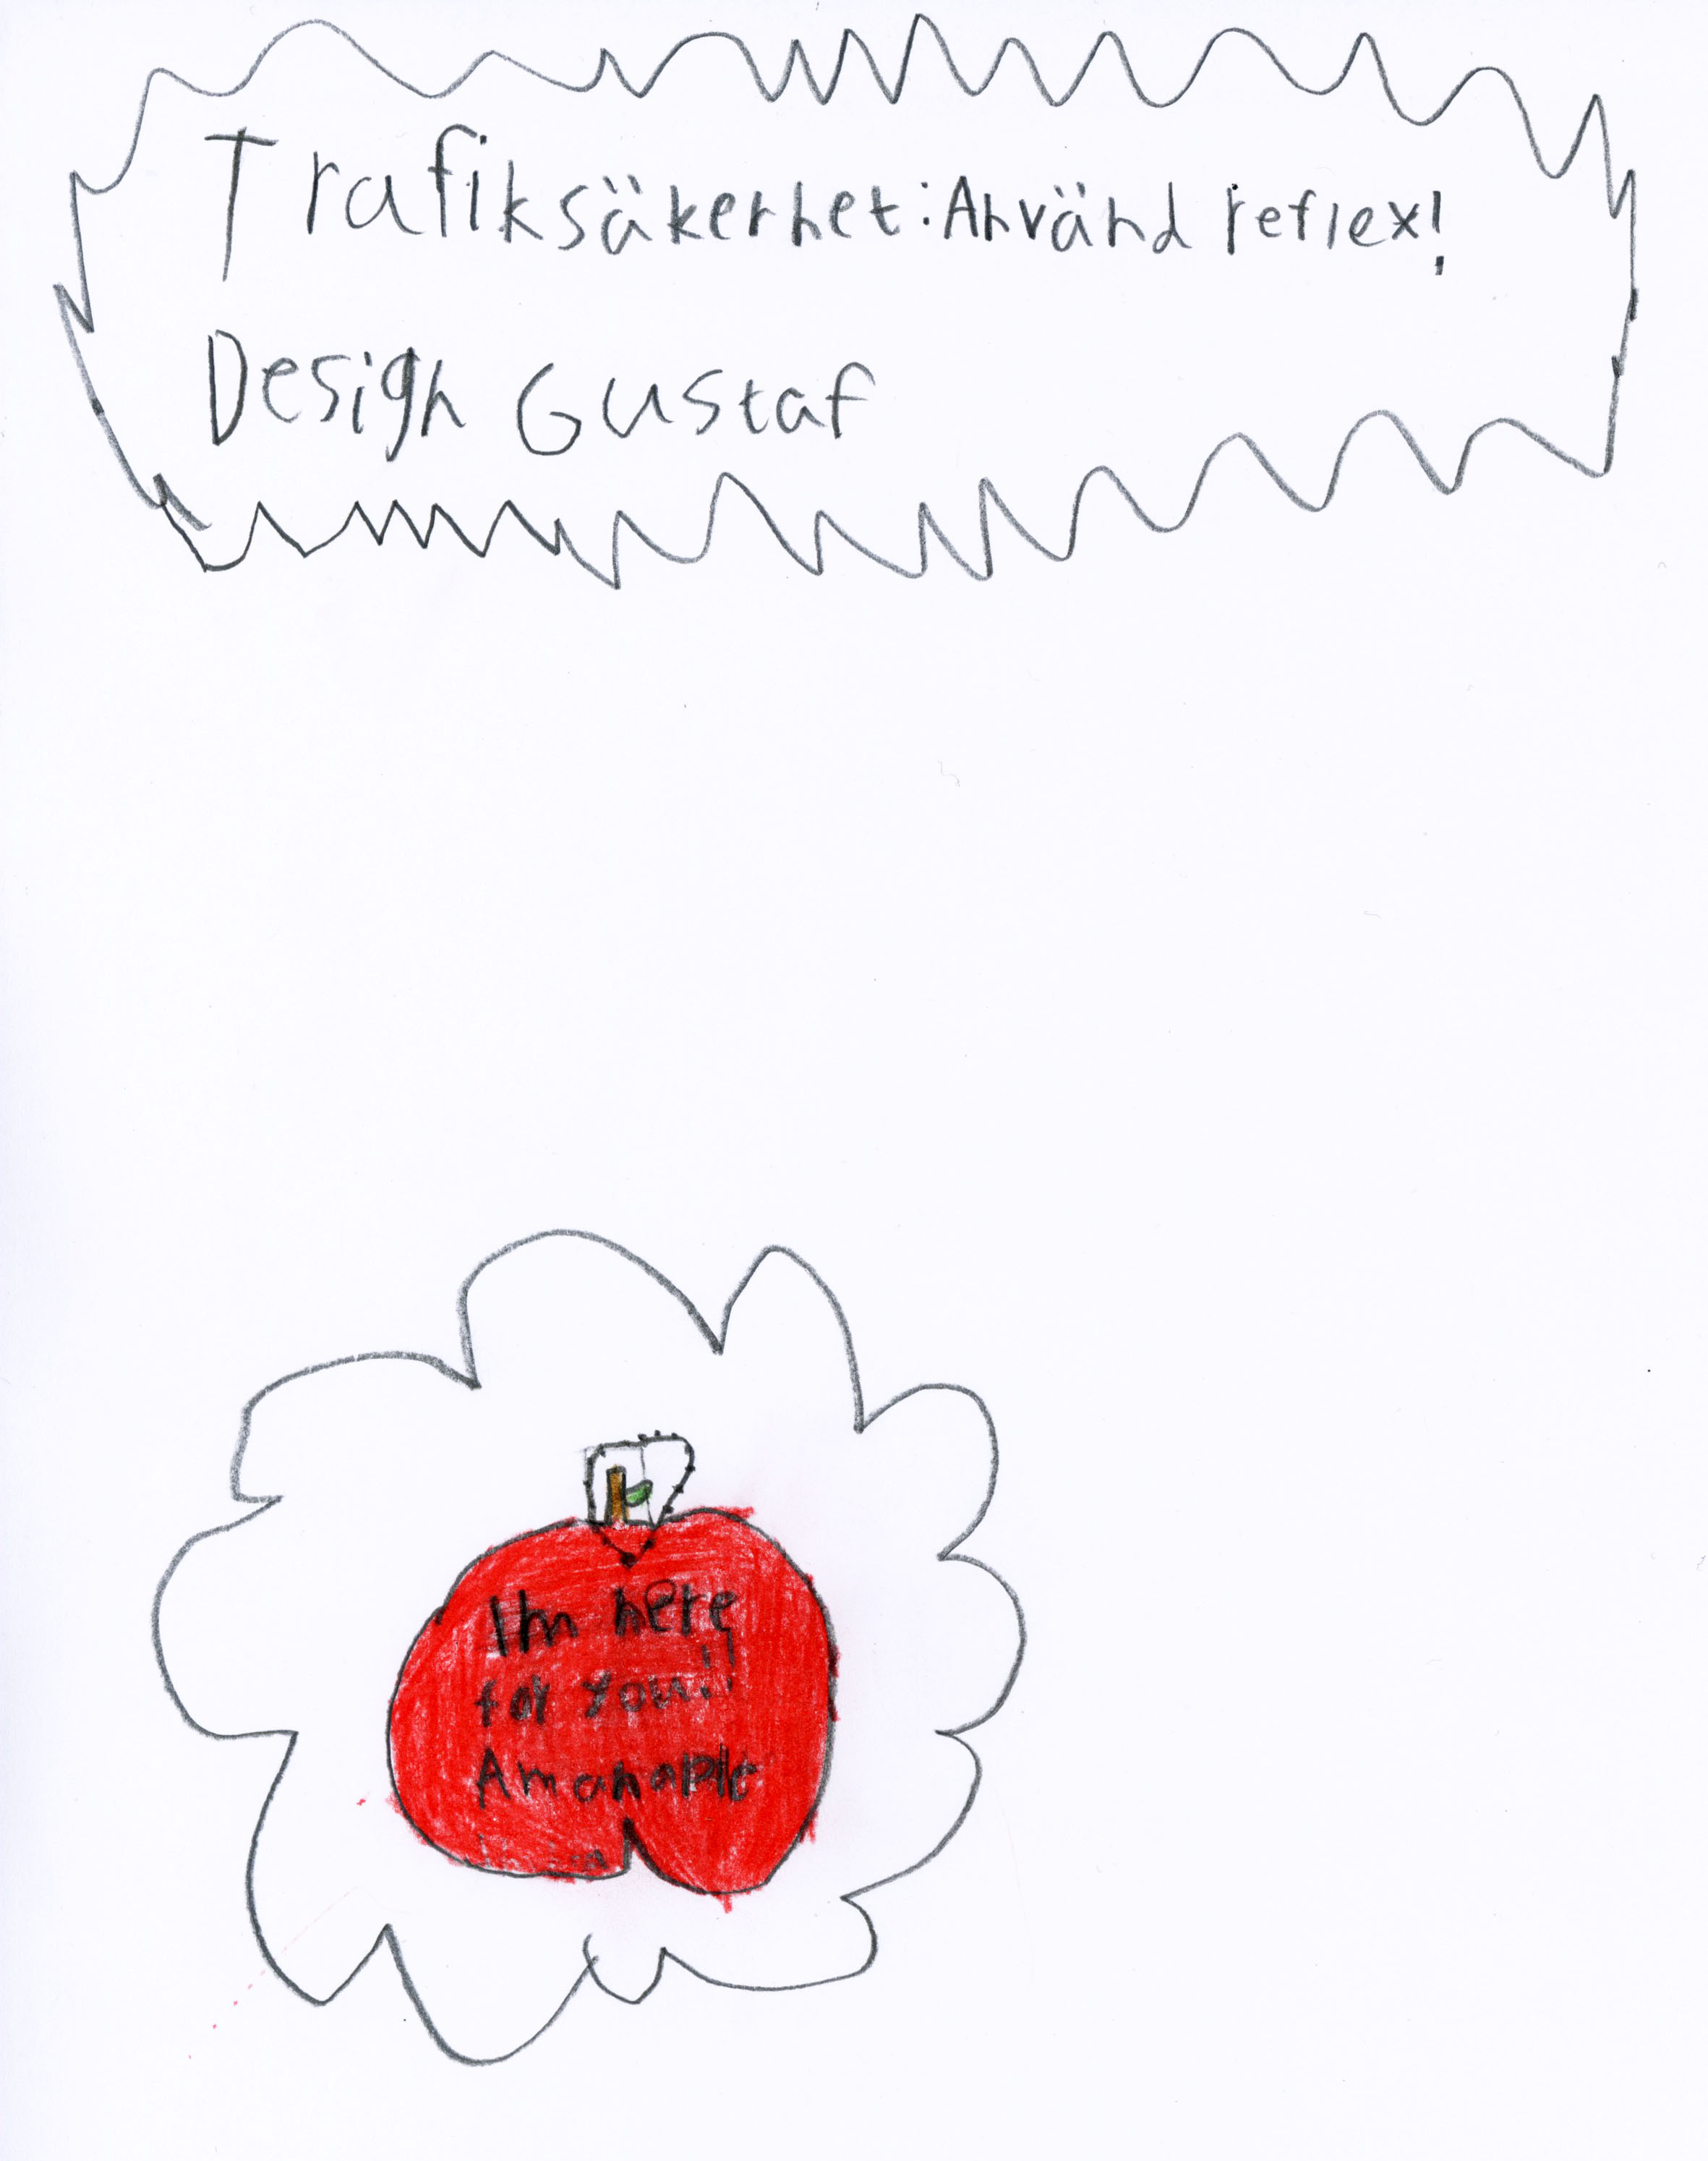 Trafiksäkerhet: Använd reflex!
Design Gustaf
I'm here
for you!!
Amanaple